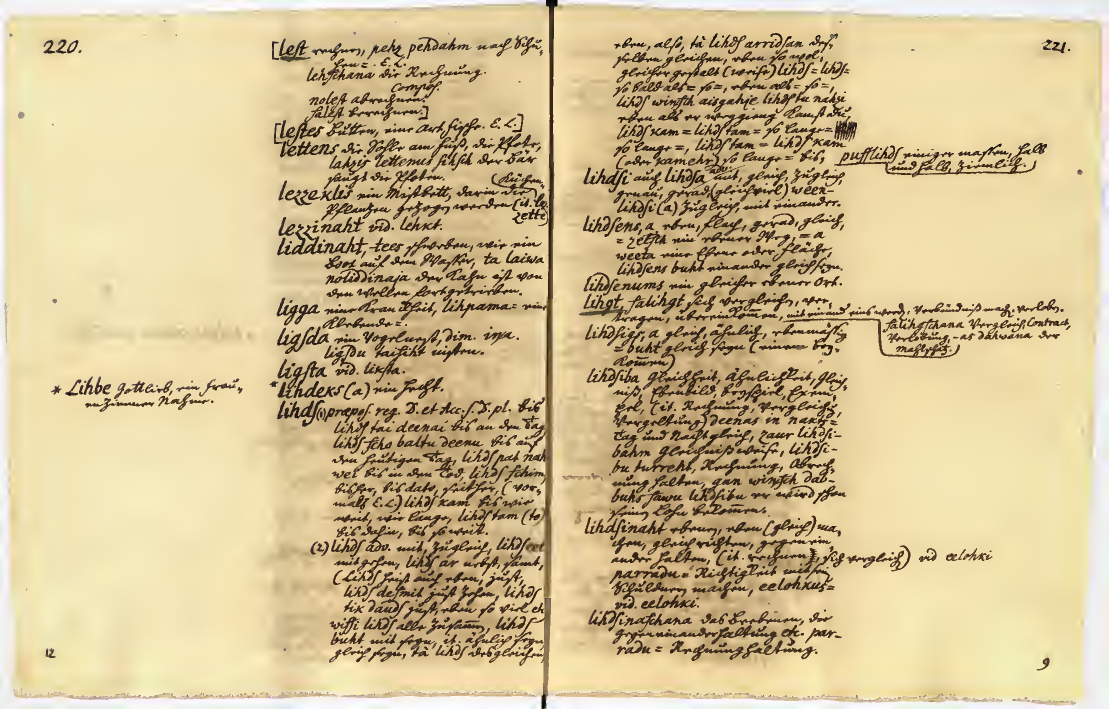 220.
[left rechnen, pehz pehdahm nach Schu-
hen =. E. L.
lehschana die Rechnung.
Compos.
noleft abrechnen.
saleft berechnen.]
[leftes Butten, eine Art Fische. E. L.]
lettens die Sohle am Fuß, die Pfote,
lahzis lettenus suhsch der Bär
saugt die Pfoten.
lezzeklis ein Mistbett, darin die (Küchen-
Pflanzen gezogen werden (it. lez-
zette)
lezzinaht vid. lehkt.
liddinaht, -tees schweben, wie ein
Boot auf dem Wasser, ta laiwa
noliddinaja der Kahn ist von
den Wellen fortgetrieben.
ligga eine Krankheit, lihpama = eine
Klebende =.
ligsda ein Vogelnest, dim. iņa.
ligsdu taisiht nisten.
ligsta vid. liksta.
* Lihbe Gottlieb, ein Frau-
enzimmer Nahme.
* lihdeks (a) ein Hecht.
lihds (1) præpos. reg. D. et Acc. s. D. pl. bis
lihds tai deenai bis an den Tag
lihds scho baltu deenu bis auf
den heutigen Tag, lihds pat nah-
wei bis in den Tod, lihds schim
bisher, bis dato, seither, (vor-
mals E. L.) lihds kam bis wie
weit, wie lange, lihds tam (to)
bis dahin, bis so weit.
(2) lihds adv. mit, zugleich, lihds eet
mitgehen, lihds ar
(lihds heist auch eben, just,
lihds desmit just zehen, lihds
tik daudf just, eben so viel
wissi lihds alle zusamm, lihds
buht mit seyn, it. ähnlich seyn
gleich seyn, tà lihds desgleichen,
12
221.
eben, also, tà lihds arridsan des-
selben gleichen, eben so wol,
gleicher gestalt (weise) lihds = lihds =
so bald als = so =, eben als = so =,
lihds winsch aisgahje lihds tu nahzi
eben als er weggieng kamst du,
lihds kam = lihds tam = so lange =
so lange =, lihds tam = lihds kam
(oder kamehr) so lange = bis, pufflihds einiger massen, halb
und halb, ziemlich.
lihdsi auch lihdsa mit, gleich, zugleich,
genau, gerad (gleichviel) ween-
lihdsi (a) zugleich, mit einander.
lihdsens, a eben, flach, gerad, gleich,
= zelsch ein ebener Weg, = a
weeta eine Ebene oder Fläche,
lihdsens buht einander gleich seyn.
lihdsenums ein gleicher ebener Ort.
lihgt, salihgt sich vergleichen, ver-
tragen, übereinkommen, mit einand eins werd. Verbündniß mach: verlob.
salihgschana Vergleich Contract,
Verlobung, - as dahwana der
Mahlschatz.
lihdsigs, a gleich, ähnlich, ebenmässig
= buht gleich seyn (einem bey-
kommen)
lihdsiba Gleichheit, Ähnlichkeit, Gleich-
niß, Ebenbild, Beyspiel, Exem-
pel, (it. Rechnung, Vergleich,
Vergeltung) deenas in nakts =
Tag und Nachtgleich, zaur lihdsi-
bahm gleichnißweise, lihdsi-
bu turreht, Rechnung, Abrech-
nung halten, gan winsch dab-
buhs sawu lihdsibu er wird schon
seinen Lohn bekommen.
lihdsinaht ebenen, eben (gleich) ma-
chen, gleich richten, gegen ein-
ander halten, (it. rechnen, sich vergleich) vid eelohki
parradu = Richtigkeit mit sein
Schuldnern machen, eelohkus =
vid. eelohki.
lihdsinaschana das Beebnen, die
gegeneinanderhaltung etc. par-
radu = Rechnunghaltung.
9